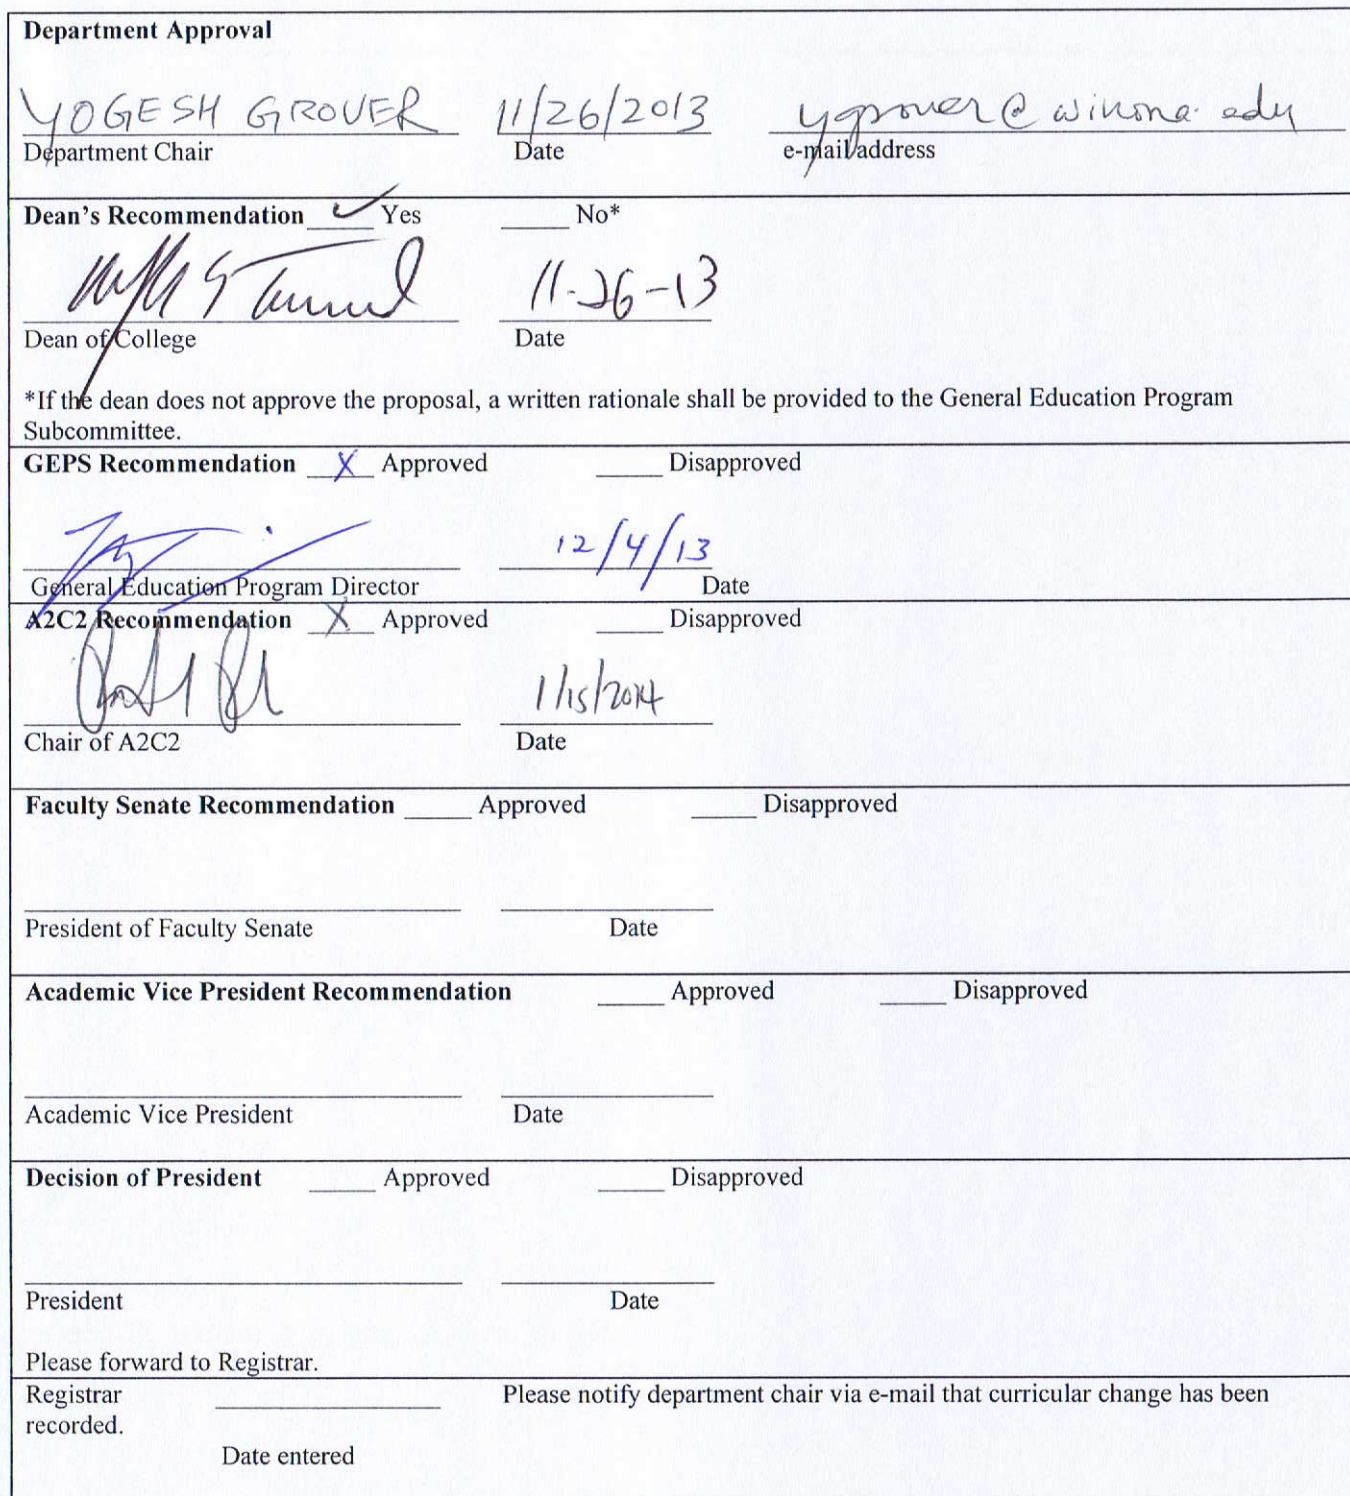 Department Approval
YOGESH GROVER 11/26/2013 ygrover@winona.edu
Department Chair Date e-mail address
Dean's Recommendation ✓ Yes _____ No*
11-26-13
Dean of College Date
*If the dean does not approve the proposal, a written rationale shall be provided to the General Education Program
Subcommittee.
GEPS Recommendation X Approved _____ Disapproved
12/4/13
General Education Program Director Date
A2C2 Recommendation X Approved _____ Disapproved
1/15/2014
Chair of A2C2 Date
Faculty Senate Recommendation _____ Approved _____ Disapproved
President of Faculty Senate Date
Academic Vice President Recommendation _____ Approved _____ Disapproved
Academic Vice President Date
Decision of President _____ Approved _____ Disapproved
President Date
Please forward to Registrar.
Registrar _____ Please notify department chair via e-mail that curricular change has been
recorded.
Date entered